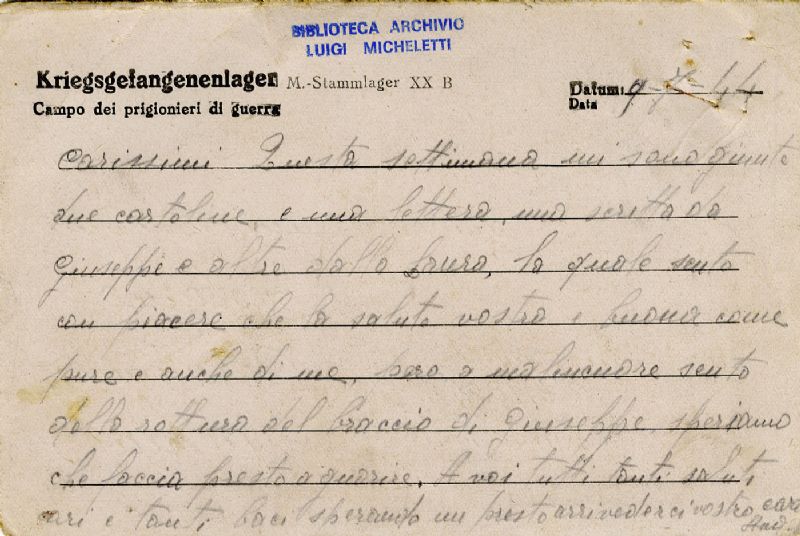 BIBLIOTECA ARCHIVIO
LUIGI MICHELETTI
Kriegsgefangenenlager M.-Stammlager XX B
Campo dei prigionieri di guerra
Datum: 9-7-44
Data
Carissimi Questa settimana mi sono giunte
due cartoline, e una lettera, una scritta da
Giuseppe e altre dalla Laura, la quale sento
con piacere che la salute vostra e buona come
pure e anche di me, pero a malincuore sento
della rottura del braccio di Giuseppe, speriamo
che faccia presto a guarire. A voi tutti tanti saluti
cari e tanti baci sperando un presto arrivederci vostro caro